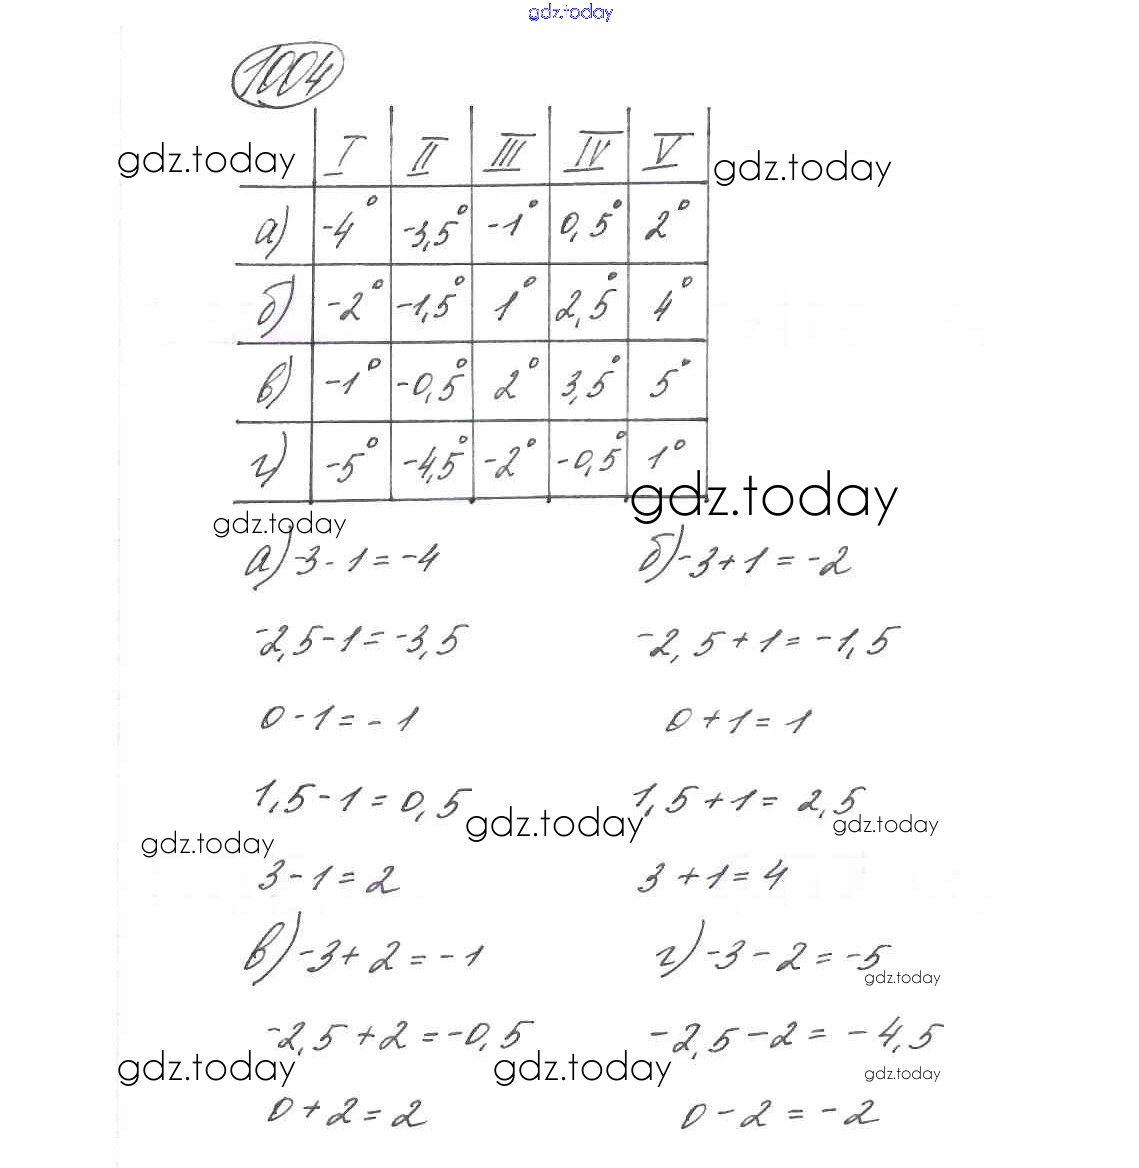 gdz.today
1004
I II III IV V
gdz.today gdz.today
а) -4° -3,5° -1° 0,5° 2°
б) -2° -1,5° 1° 2,5° 4°
в) -1° -0,5° 2° 3,5° 5°
г) -5° -4,5° -2° -0,5° 1°
gdz.today
gdz.today
а) -3-1=-4 б) -3+1=-2
-2,5-1=-3,5 -2,5+1=-1,5
0-1=-1 0+1=1
1,5-1=0,5 1,5+1=2,5
gdz.today gdz.today
gdz.today
3-1=2 3+1=4
в) -3+2=-1 г) -3-2=-5
gdz.today
-2,5+2=-0,5 -2,5-2=-4,5
gdz.today gdz.today gdz.today
0+2=2 0-2=-2